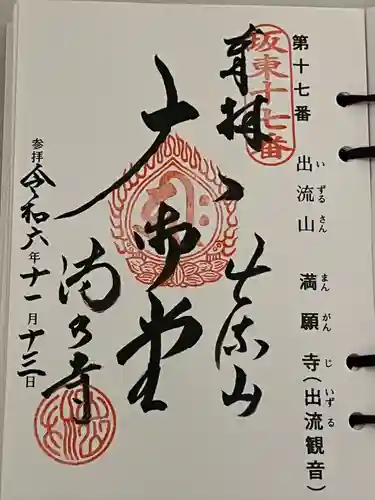 第十七番　出流山　満願寺（出流観音）
いずるさん　まんがんじ　いずる
坂東十七番
奉拝
出流山
大御堂
満願寺
参拝
令和六年十一月十三日